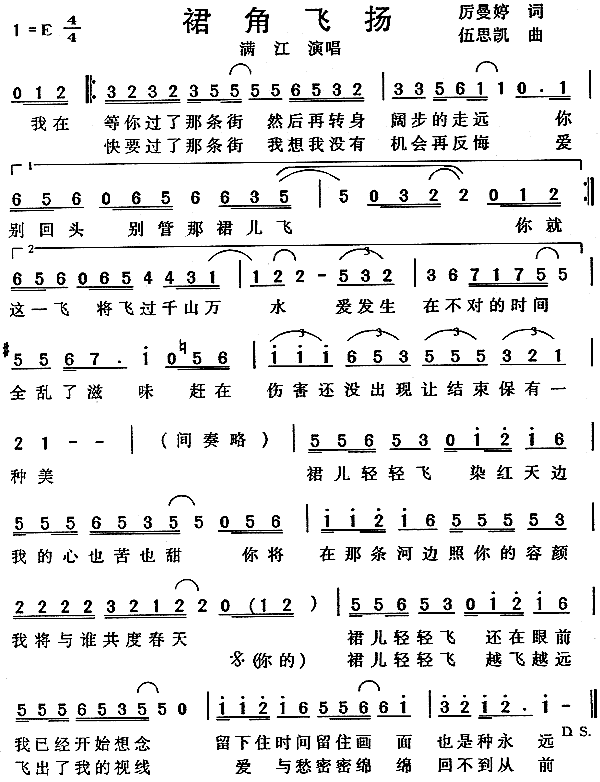 1=E 4/4 裙角飞扬 厉曼婷 词
满江 演唱 伍思凯 曲
0 1 2 3 2 3 2 3 5 5 5 5 6 5 3 2 3 3 5 6 1 1 0 . 1
我在 等你过了那条街 然后再转身 阔步的走远 你
快要过了那条街 我想我没有 机会再反悔 爱
1
6 5 6 0 6 5 6 6 3 5 5 0 3 2 2 0 1 2
别回头 别管那裙儿飞 你就
2
6 5 6 0 6 5 4 4 3 1 1 2 2 - 5 3 2 3 6 7 1 7 5 5
3
这一飞 将飞过千山万 水 爱发生 在不对的时间
#5 5 6 7 . i 0 ♮5 6 i i i 6 5 3 5 5 5 3 2 1
3 3 3 3
全乱了滋 味 赶在 伤害还没出现让结束保有一
2 1 - - (间奏略) 5 5 6 5 3 0 i 2 i 6
种美 裙儿轻轻飞 染红天边
5 5 5 5 6 5 3 5 5 0 5 6 i i 2 i 6 5 5 5 5 5 3
我的心也苦也甜 你将 在那条河边照你的容颜
2 2 2 2 3 2 1 2 2 0 (1 2) 5 5 6 5 3 0 i 2 i 6
我将与谁共度春天 裙儿轻轻飞 还在眼前
𝄋(你的) 裙儿轻轻飞 越飞越远
5 5 5 6 5 3 5 5 0 i i 2 i 6 5 6 6 i 6 5 3 5 i -
我已经开始想念 留下住时间留住画 面 也是种永远
D.S.
飞出了我的视线 爱 与愁密密绵 绵 回不到从前